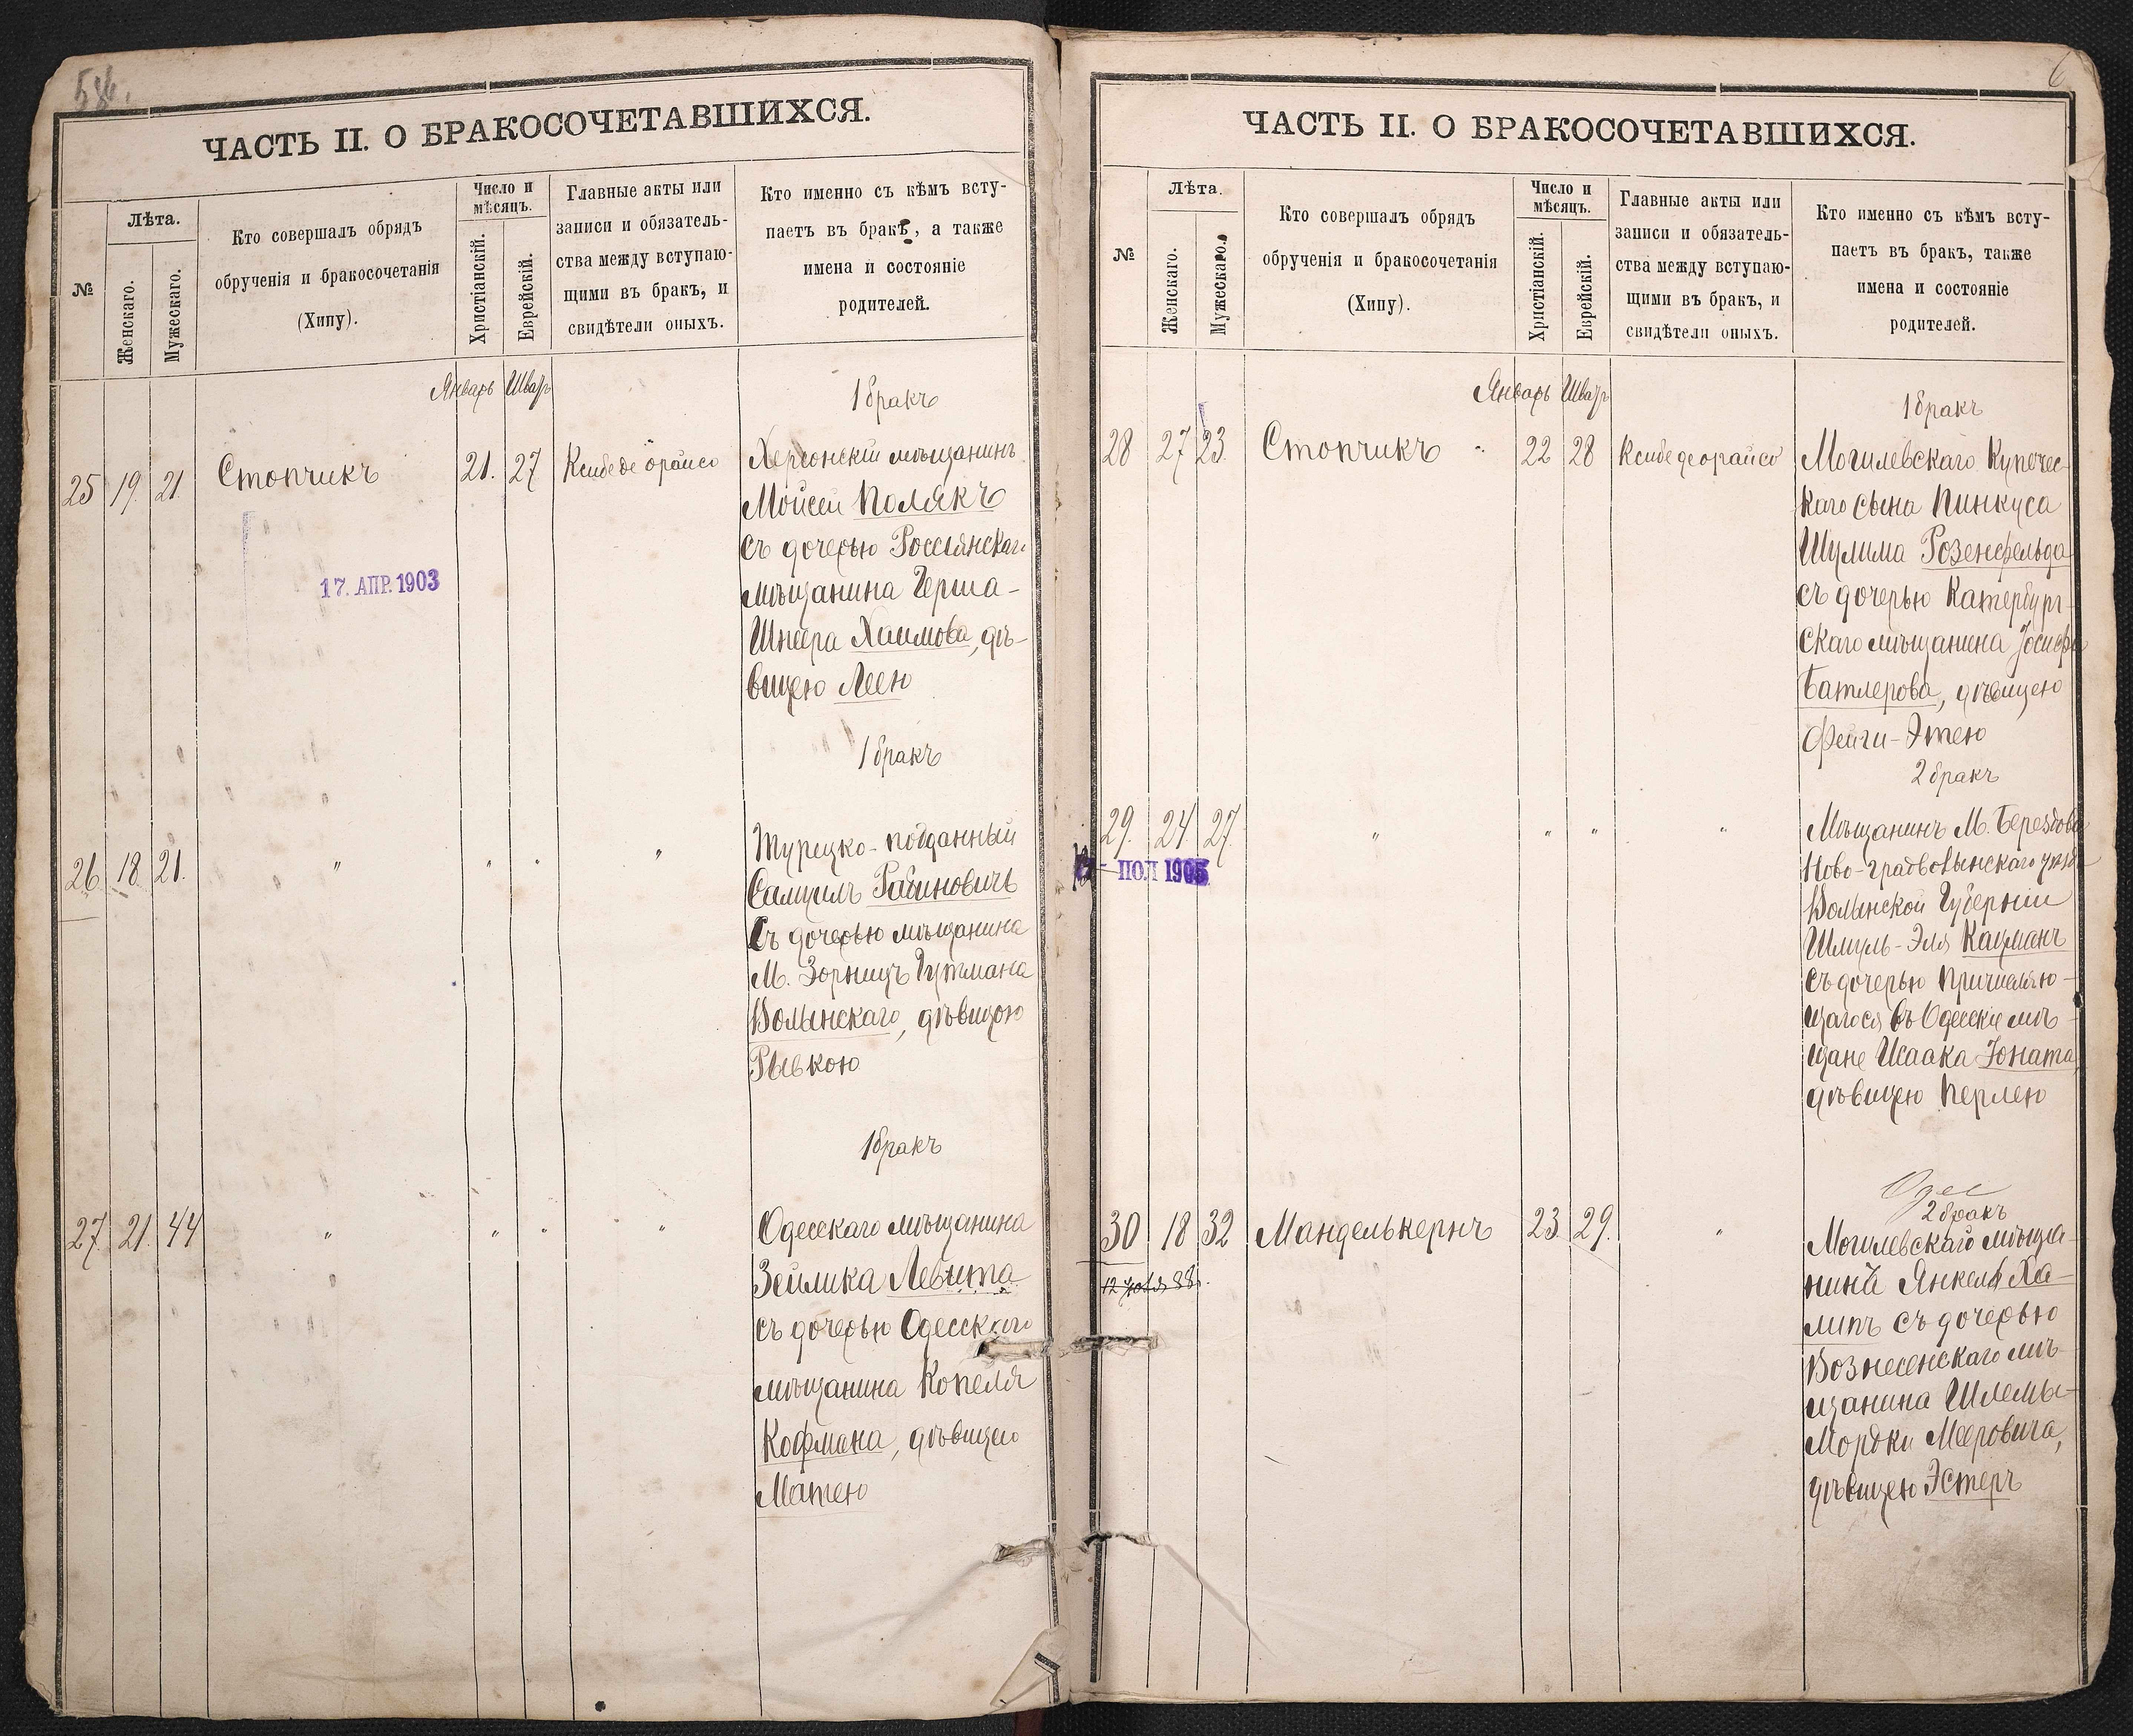 ЧАСТЬ II. О БРАКОСОЧЕТАВШИХСЯ.
№
Лѣта.
Женскаго.
Мужескаго.
Кто совершалъ обрядъ
обрученія и бракосочетанія
(Хипу).
Число и
мѣсяцъ.
Христіанскій.
Еврейскій.
Главные акты или
записи и обязатель-
ства между вступаю-
щими въ бракъ, и
свидѣтели оныхъ.
Кто именно съ кѣмъ всту-
паетъ въ бракъ, а также
имена и состояніе
родителей.
Январь Шватъ
1 бракъ
25 19. 21. Стопчикъ 21. 27 Ксибе де орайсо Херсонскій мѣщанинъ
Мойсей Полякъ
съ дочерью Россіянскаго
17. АПР. 1903
мѣщанина Герша-
Шнеера Хаимова, дѣ-
вицею Леею
1 бракъ
26 18. 21. " " " " Турецко-подданный
Самуилъ Рабиновичъ
съ дочерью мѣщанина
М. Зорницъ Гутмана
Волынскаго, дѣвицею
Рывкою
1 бракъ
27. 21. 44 " " " " Одесскаго мѣщанина
Зейлика Левита
съ дочерью Одесскаго
мѣщанина Копеля
Кофмана, дѣвицею
Матею
6
ЧАСТЬ II. О БРАКОСОЧЕТАВШИХСЯ.
№
Лѣта.
Женскаго.
Мужескаго.
Кто совершалъ обрядъ
обрученія и бракосочетанія
(Хипу).
Число и
мѣсяцъ.
Христіанскій.
Еврейскій.
Главные акты или
записи и обязатель-
ства между вступаю-
щими въ бракъ, и
свидѣтели оныхъ.
Кто именно съ кѣмъ всту-
паетъ въ бракъ, также
имена и состояніе
родителей.
Январь Шватъ
1 бракъ
28 27 23 Стопчикъ 22 28 Ксибе де орайсо Могилевскаго купечес-
каго сына Пинкуса
Шулима Розенфельда
съ дочерью Катербург-
скаго мѣщанина Іосифа
Батлерова, дѣвицею
Фейги-Этею
2 бракъ
29. 24. 27. " " " " Мѣщанинъ М. Березова
ПОЛ 1905
Ново-градволынскаго уѣзда
Волынской Губерніи
Шмуль-Эля Кацманъ
съ дочерью причисляю-
щагося въ Одесскіе мѣ-
щане Исаака Зоната,
дѣвицею Перлею
Одес
2 бракъ
30 18 32 Мандelькернъ 23 29. " Могилевскаго мѣща-
нина Янкель Ха-
липъ съ дочерью
Вознесенскаго мѣ-
щанина Шлемы-
Мордки Мееровича,
дѣвицею Эстеръ